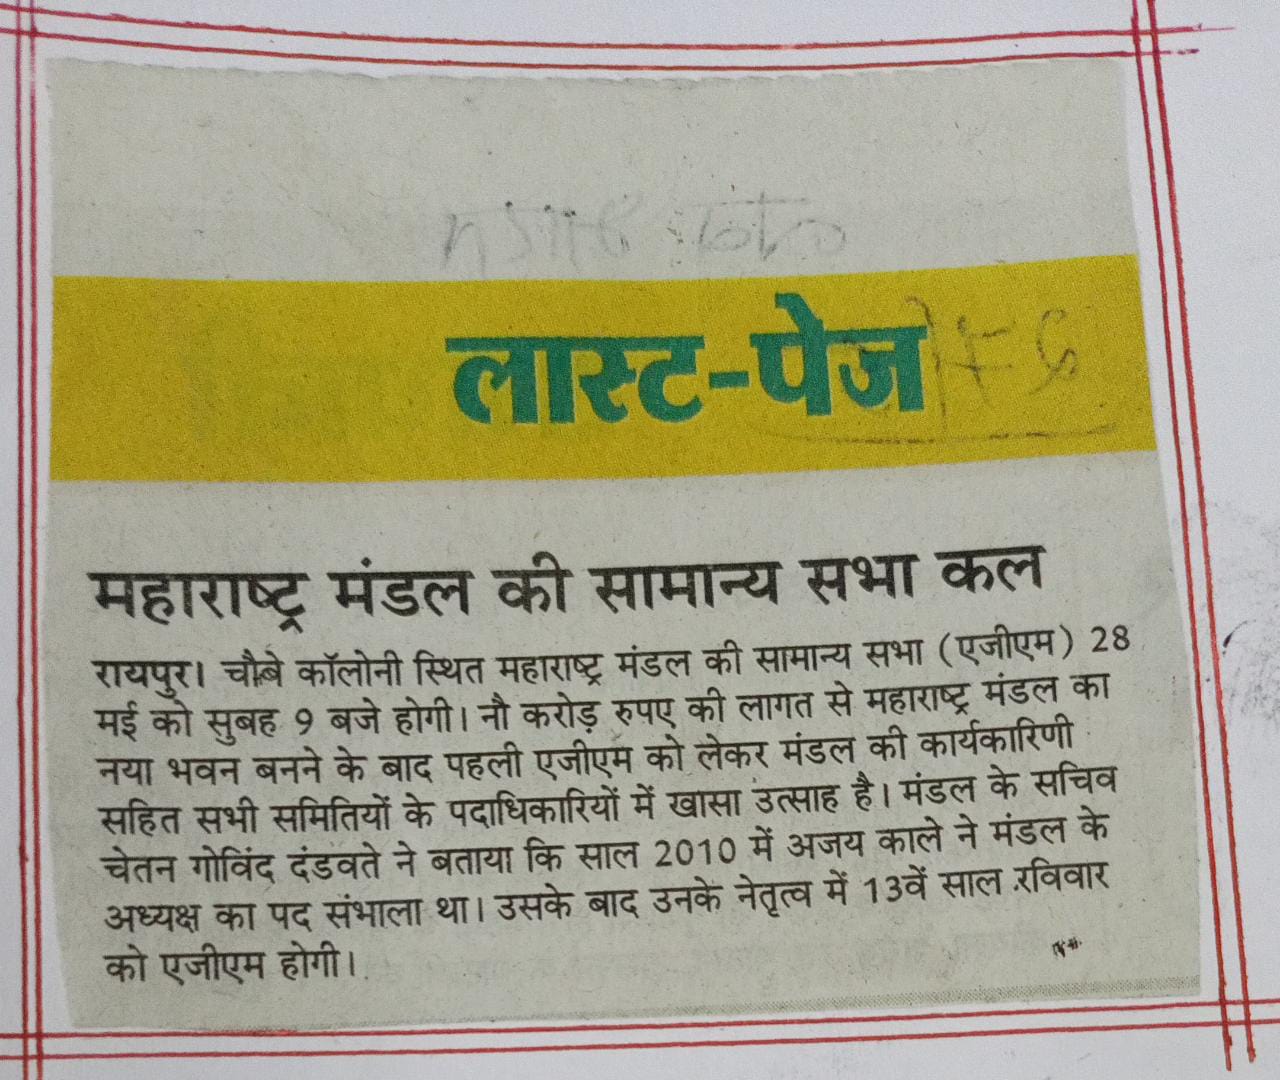 लास्ट-पेज
महाराष्ट्र मंडल की सामान्य सभा कल
रायपुर। चौबे कॉलोनी स्थित महाराष्ट्र मंडल की सामान्य सभा (एजीएम) 28
मई को सुबह 9 बजे होगी। नौ करोड़ रुपए की लागत से महाराष्ट्र मंडल का
नया भवन बनने के बाद पहली एजीएम को लेकर मंडल की कार्यकारिणी
सहित सभी समितियों के पदाधिकारियों में खासा उत्साह है। मंडल के सचिव
चेतन गोविंद दंडवते ने बताया कि साल 2010 में अजय काले ने मंडल के
अध्यक्ष का पद संभाला था। उसके बाद उनके नेतृत्व में 13वें साल रविवार
को एजीएम होगी।